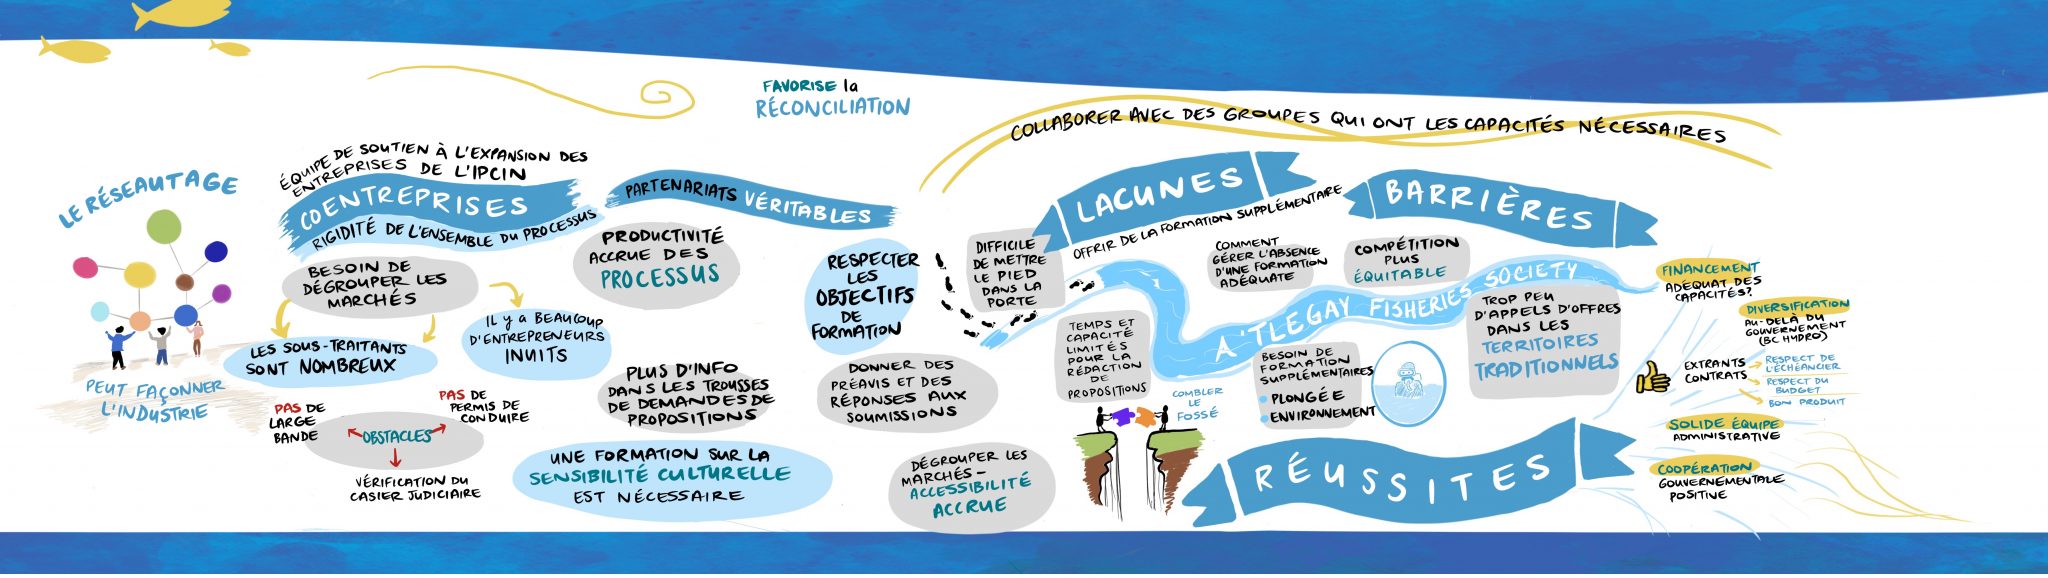 LE RÉSEAUTAGE
PEUT FAÇONNER
L'INDUSTRIE
ÉQUIPE DE SOUTIEN À L'EXPANSION DES
ENTREPRISES DE L'IPCIN
COENTREPRISES
RIGIDITÉ DE L'ENSEMBLE DU PROCESSUS
BESOIN DE
DÉGROUPER LES
MARCHÉS
LES SOUS-TRAITANTS
SONT NOMBREUX
IL Y A BEAUCOUP
D'ENTREPRENEURS
INUITS
PAS DE
LARGE
BANDE
OBSTACLES
PAS DE
PERMIS DE
CONDUIRE
VÉRIFICATION DU
CASIER JUDICIAIRE
FAVORISE la
RÉCONCILIATION
PARTENARIATS VÉRITABLES
PRODUCTIVITÉ
ACCRUE DES
PROCESSUS
RESPECTER
LES
OBJECTIFS
DE
FORMATION
PLUS D'INFO
DANS LES TROUSSES
DE DEMANDES DE
PROPOSITIONS
DONNER DES
PRÉAVIS ET DES
RÉPONSES AUX
SOUMISSIONS
UNE FORMATION SUR LA
SENSIBILITÉ CULTURELLE
EST NÉCESSAIRE
DÉGROUPER LES
MARCHÉS –
ACCESSIBILITÉ
ACCRUE
COLLABORER AVEC DES GROUPES QUI ONT LES CAPACITÉS NÉCESSAIRES
LACUNES
OFFRIR DE LA FORMATION SUPPLÉMENTAIRE
BARRIÈRES
DIFFICILE
DE METTRE
LE PIED
DANS LA
PORTE
COMMENT
GÉRER L'ABSENCE
D'UNE FORMATION
ADÉQUATE
COMPÉTITION
PLUS
ÉQUITABLE
A'TLEGAY FISHERIES SOCIETY
TEMPS ET
CAPACITÉ
LIMITÉS
POUR LA
RÉDACTION
DE
PROPOSITIONS
COMBLER
LE
FOSSÉ
BESOIN DE
FORMATION
SUPPLÉMENTAIRES
• PLONGÉE
• ENVIRONNEMENT
TROP PEU
D'APPELS D'OFFRES
DANS LES
TERRITOIRES
TRADITIONNELS
RÉUSSITES
FINANCEMENT
ADÉQUAT DES
CAPACITÉS?
DIVERSIFICATION
AU-DELÀ DU
GOUVERNEMENT
(BC HYDRO)
EXTRANTS
CONTRATS
RESPECT DE
L'ÉCHÉANCIER
RESPECT DU
BUDGET
BON PRODUIT
SOLIDE ÉQUIPE
ADMINISTRATIVE
COOPÉRATION
GOUVERNEMENTALE
POSITIVE